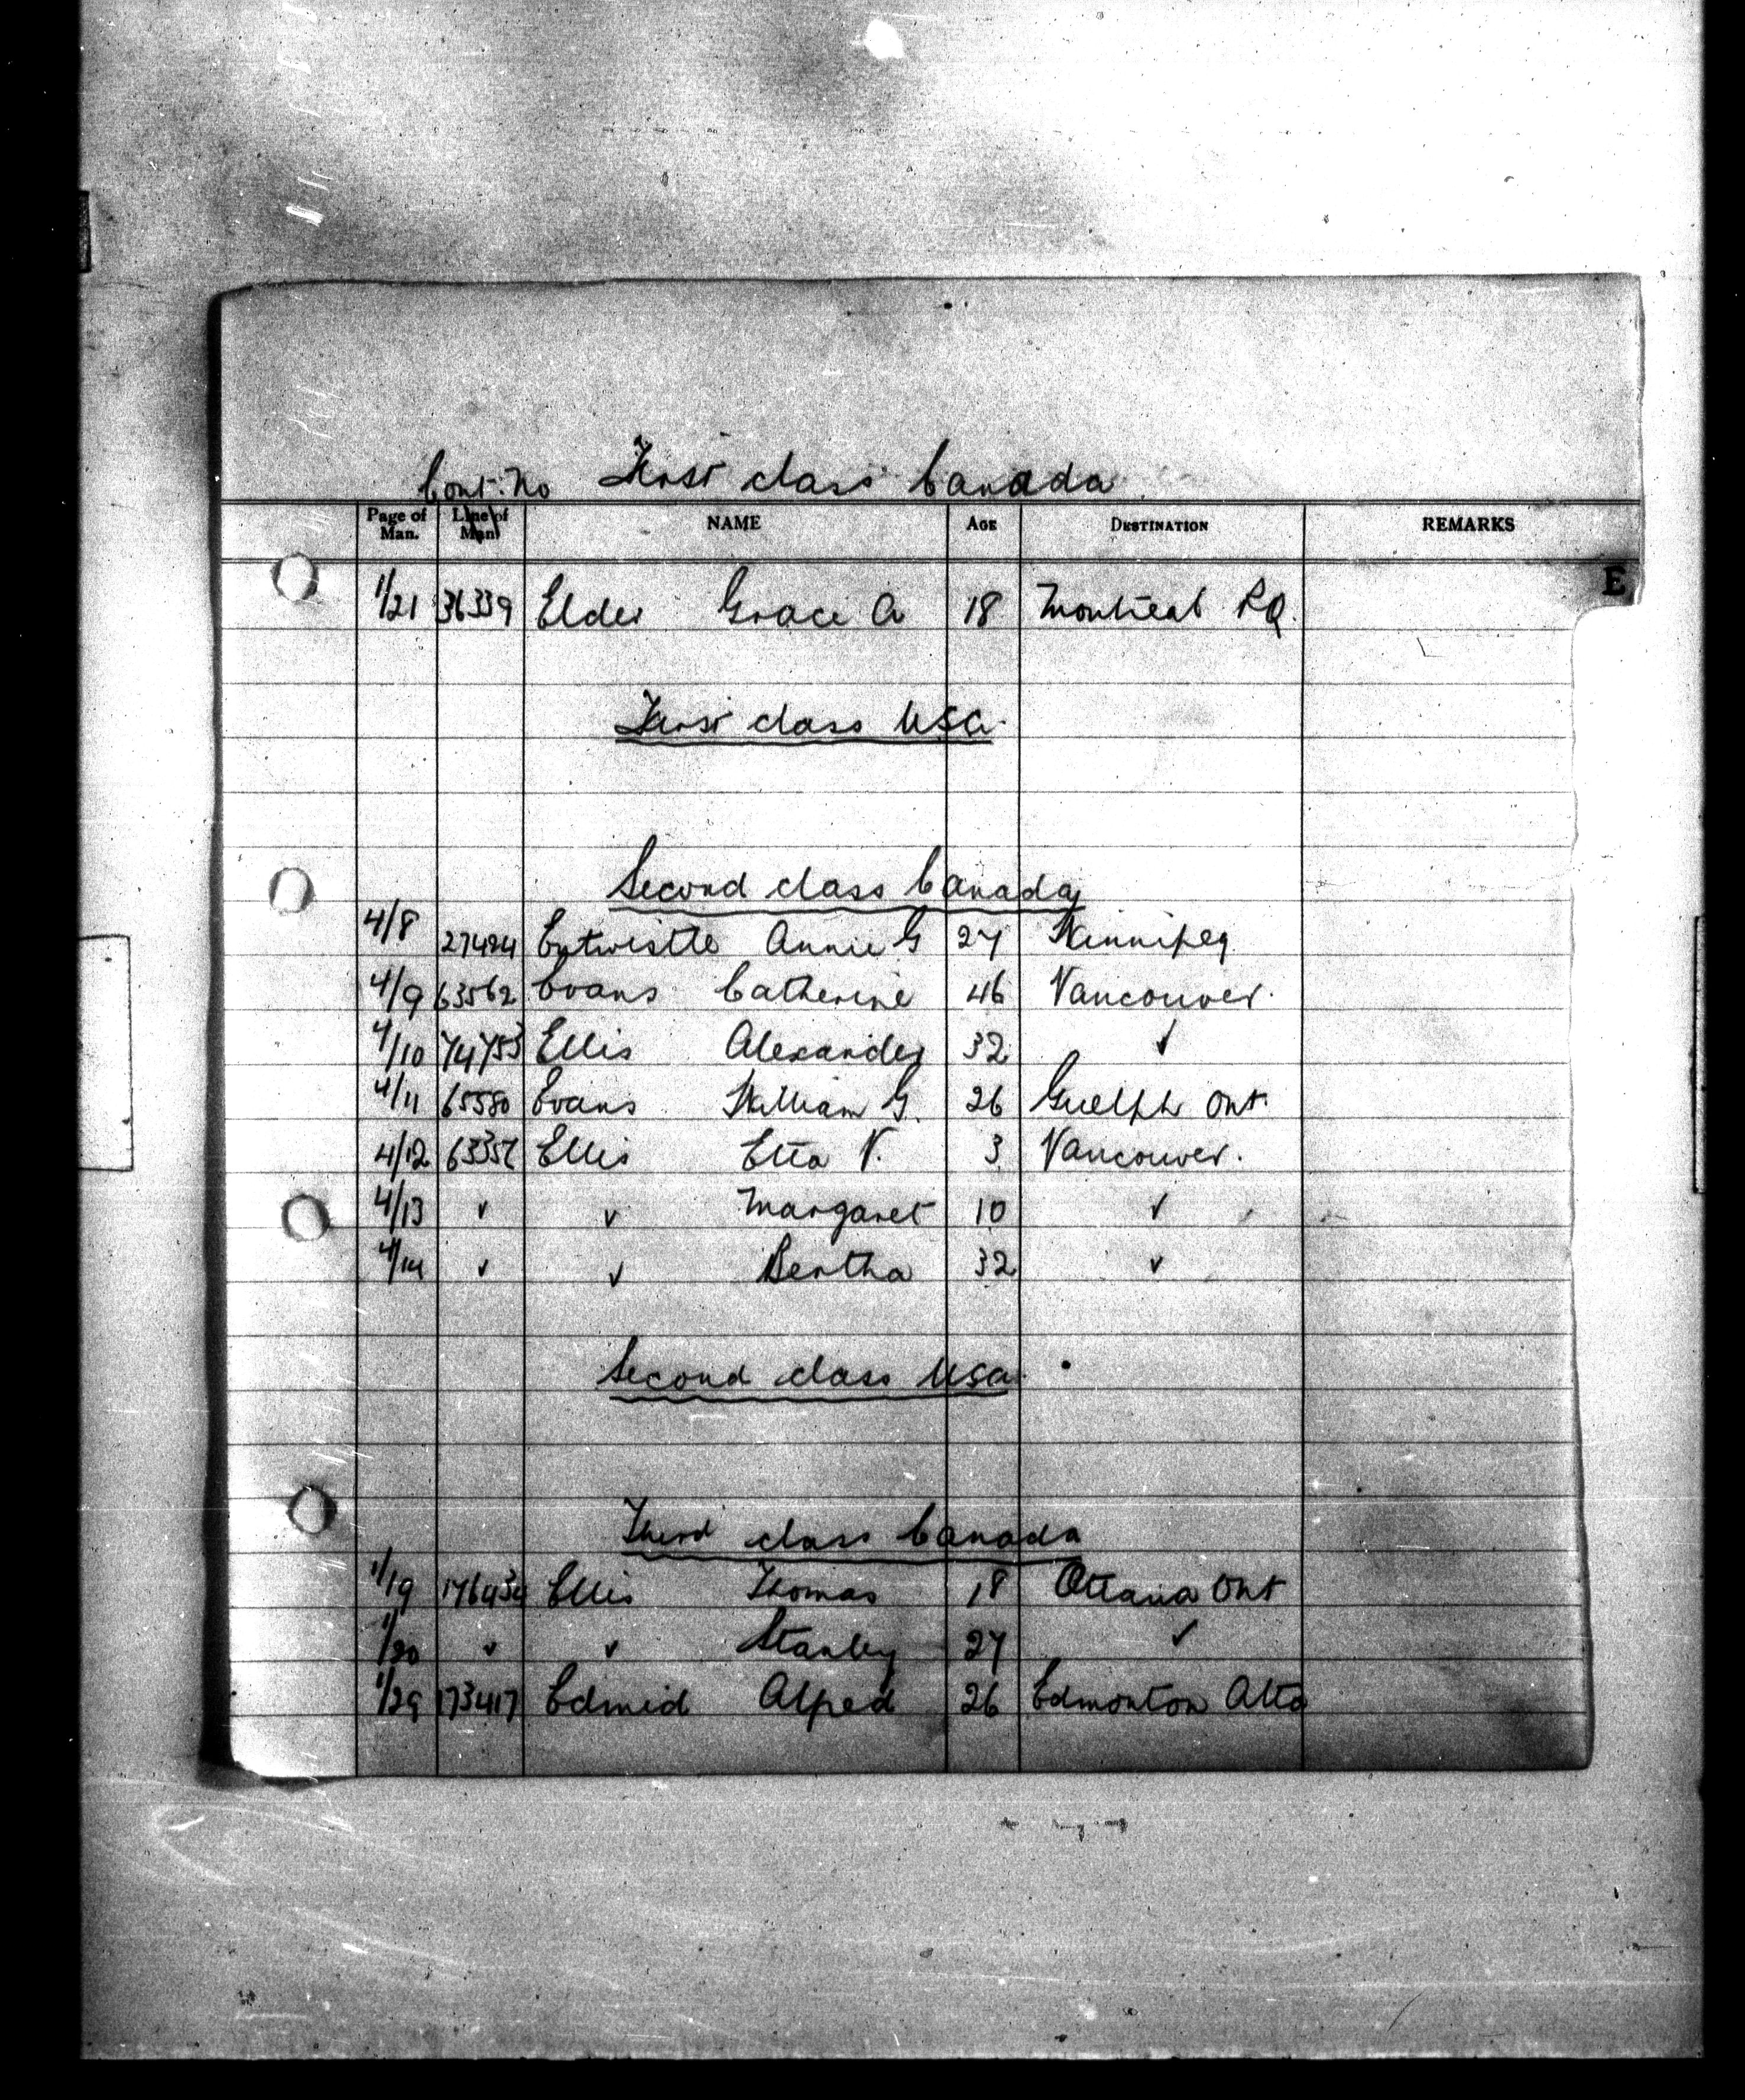 Cont. No First class Canada
Page of Man. Line of Man NAME AGE DESTINATION REMARKS
E
1/21 36339 Elder Grace A 18 Montreal P.Q.
First class USA.
Second class Canada
4/8 27424 Entwistle Annie G 27 Winnipeg
4/9 63562 Evans Catherine 46 Vancouver.
4/10 74753 Ellis Alexander 32 ✓
4/11 65580 Evans William G. 26 Guelph Ont.
4/12 63357 Ellis Etta V. 3 Vancouver.
4/13 ✓ ✓ Margaret 10 ✓
4/14 ✓ ✓ Bertha 32 ✓
Second class USA.
Third class Canada
1/19 176434 Ellis Thomas 18 Ottawa Ont
1/20 ✓ ✓ Stanley 27 ✓
1/29 173417 Edmid Alfred 26 Edmonton Alta